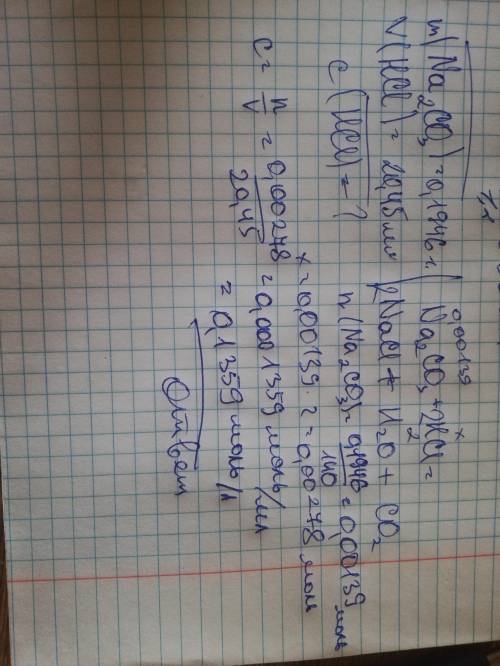 7,1
m(Na₂CO₃) = 0,1946 г.
V(HCl) = 20,45 мл
c(HCl) = ?
0,00139 x
Na₂CO₃ + 2HCl =
2
2NaCl + H₂O + CO₂
n(Na₂CO₃) = 0,1946/140 = 0,00139 моль
x = 0,00139 · 2 = 0,00278 моль
c = n/V = 0,00278/20,45 = 0,0001359 моль/мл
= 0,1359 моль/л
Ответ